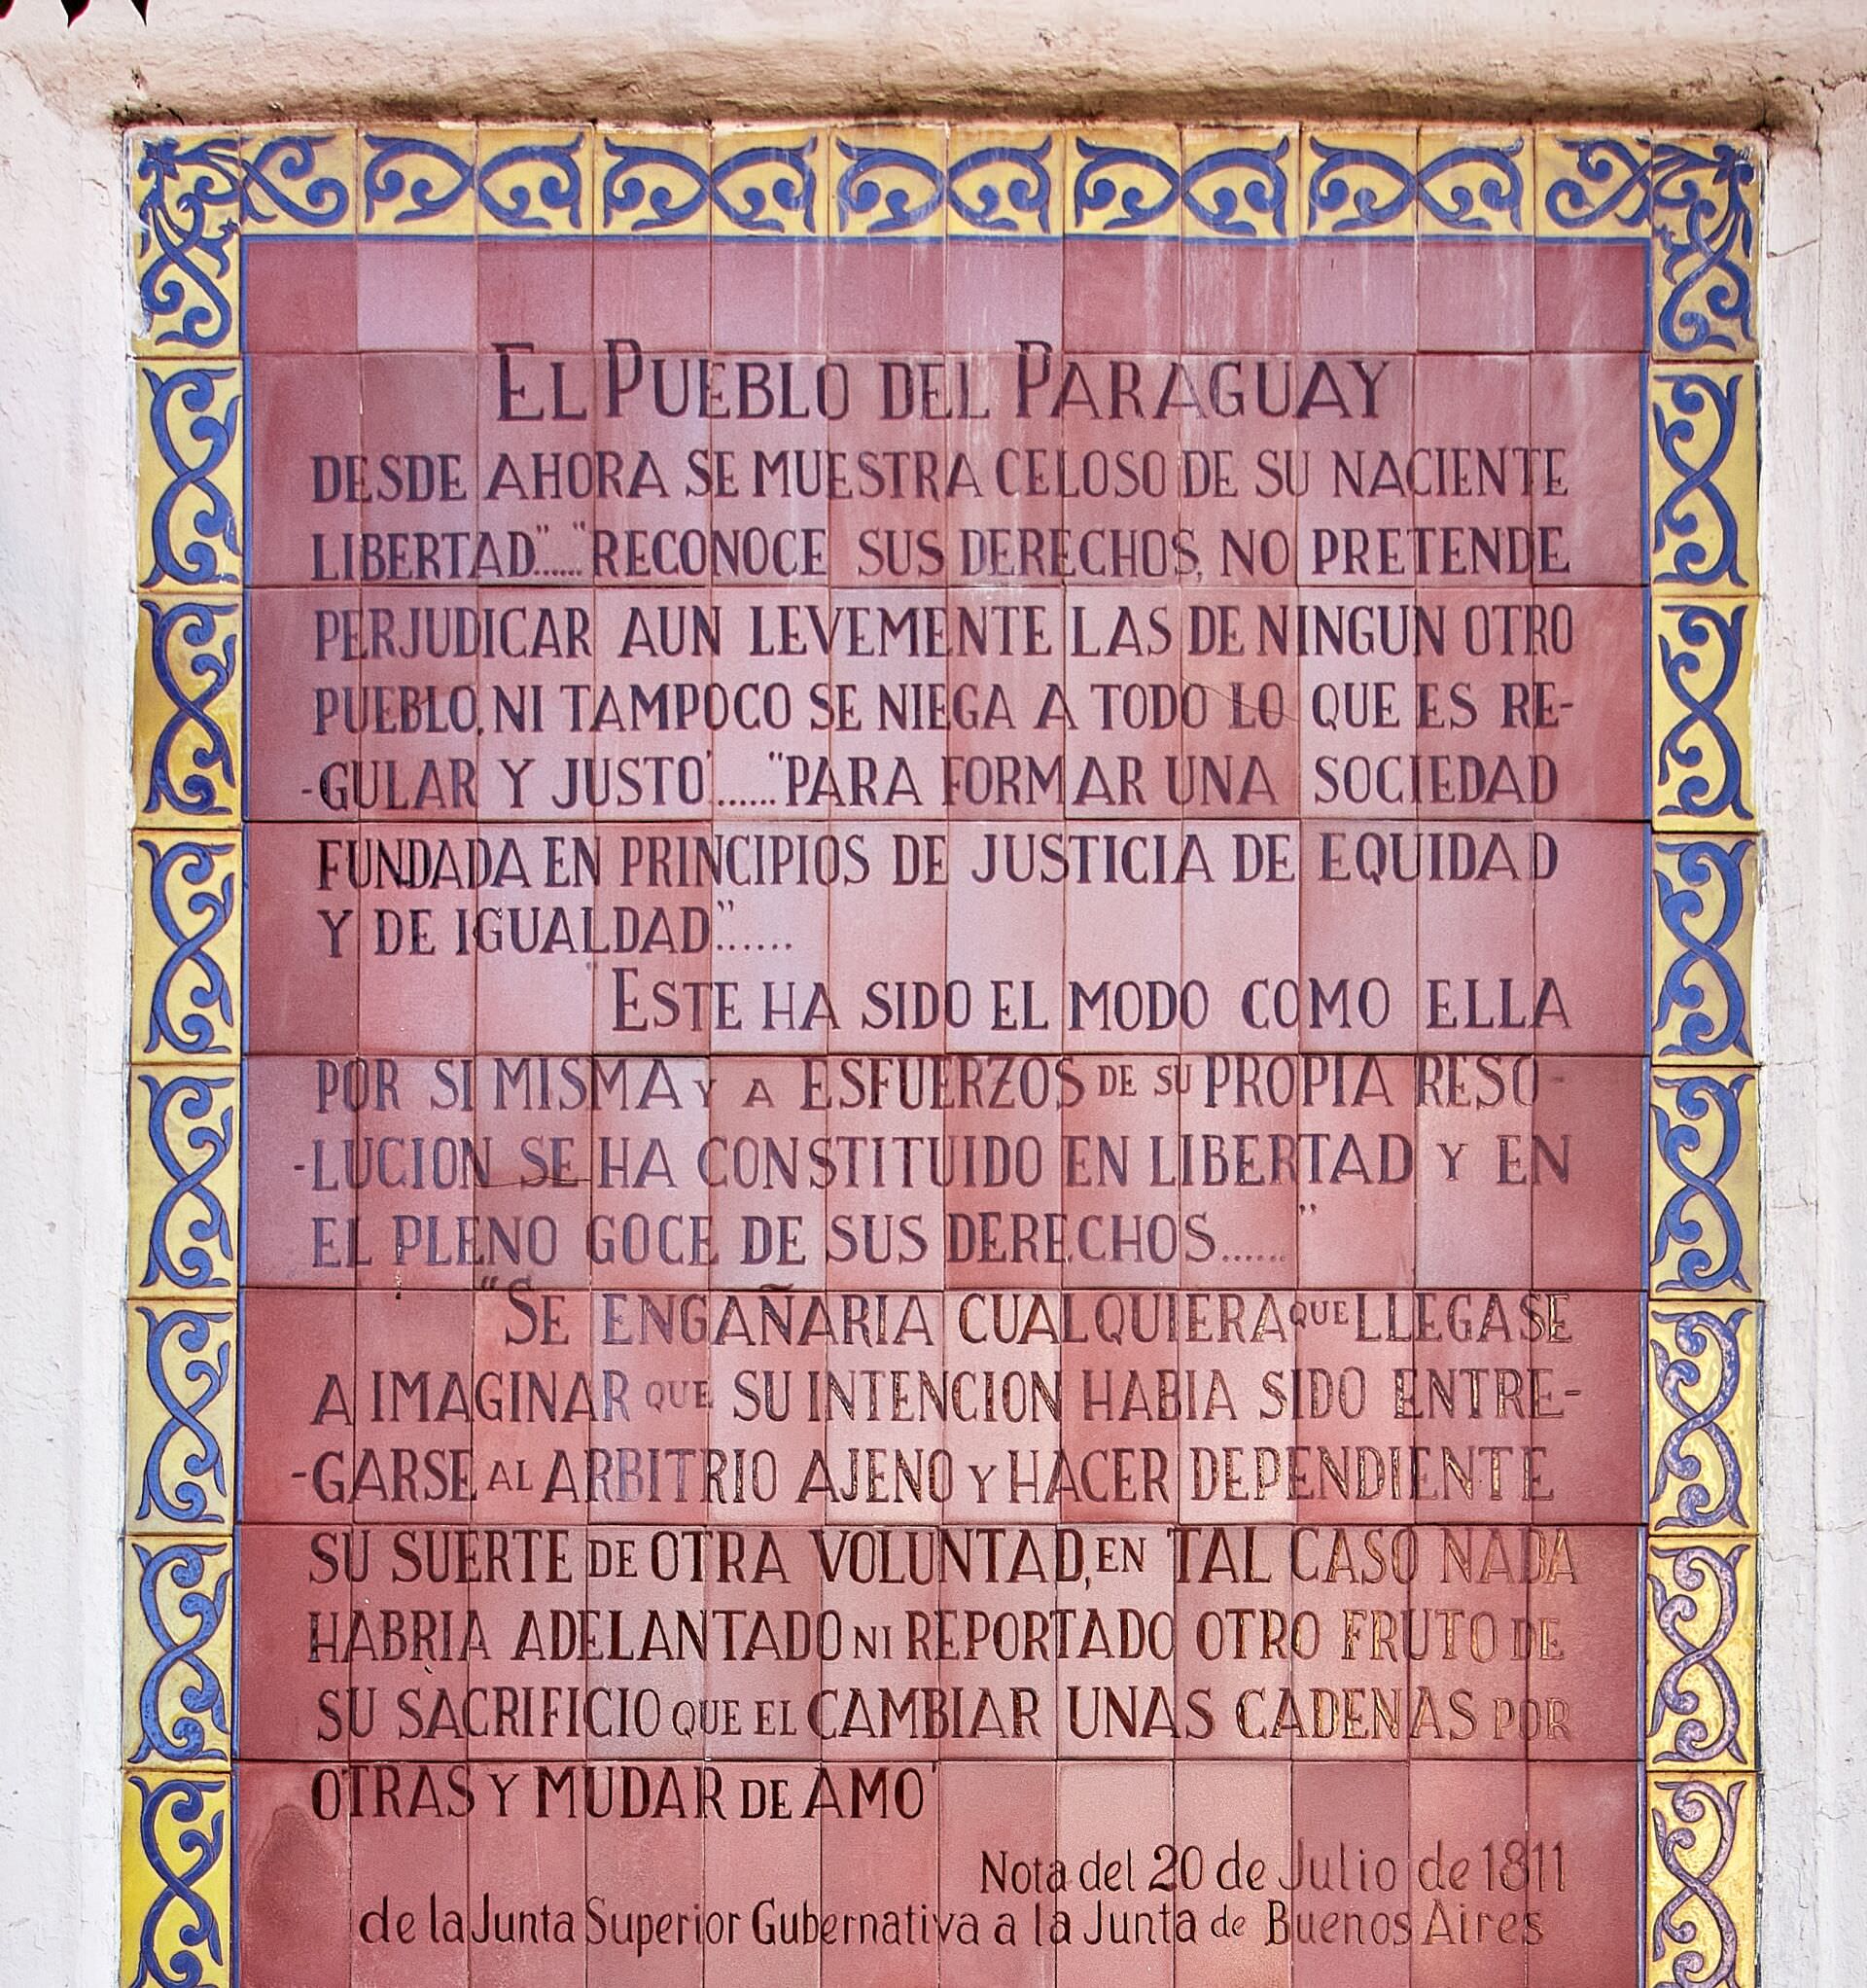 EL PUEBLO DEL PARAGUAY
DESDE AHORA SE MUESTRA CELOSO DE SU NACIENTE
LIBERTAD"......"RECONOCE SUS DERECHOS, NO PRETENDE
PERJUDICAR AUN LEVEMENTE LAS DE NINGUN OTRO
PUEBLO, NI TAMPOCO SE NIEGA A TODO LO QUE ES RE-
-GULAR Y JUSTO'......"PARA FORMAR UNA SOCIEDAD
FUNDADA EN PRINCIPIOS DE JUSTICIA DE EQUIDAD
Y DE IGUALDAD"......
"ESTE HA SIDO EL MODO COMO ELLA
POR SI MISMA Y A ESFUERZOS DE SU PROPIA RESO-
-LUCION SE HA CONSTITUIDO EN LIBERTAD Y EN
EL PLENO GOCE DE SUS DERECHOS......"
"SE ENGAÑARIA CUALQUIERA QUE LLEGASE
A IMAGINAR QUE SU INTENCION HABIA SIDO ENTRE-
-GARSE AL ARBITRIO AJENO Y HACER DEPENDIENTE
SU SUERTE DE OTRA VOLUNTAD, EN TAL CASO NADA
HABRIA ADELANTADO NI REPORTADO OTRO FRUTO DE
SU SACRIFICIO QUE EL CAMBIAR UNAS CADENAS POR
OTRAS Y MUDAR DE AMO'
Nota del 20 de Julio de 1811
de la Junta Superior Gubernativa a la Junta de Buenos Aires